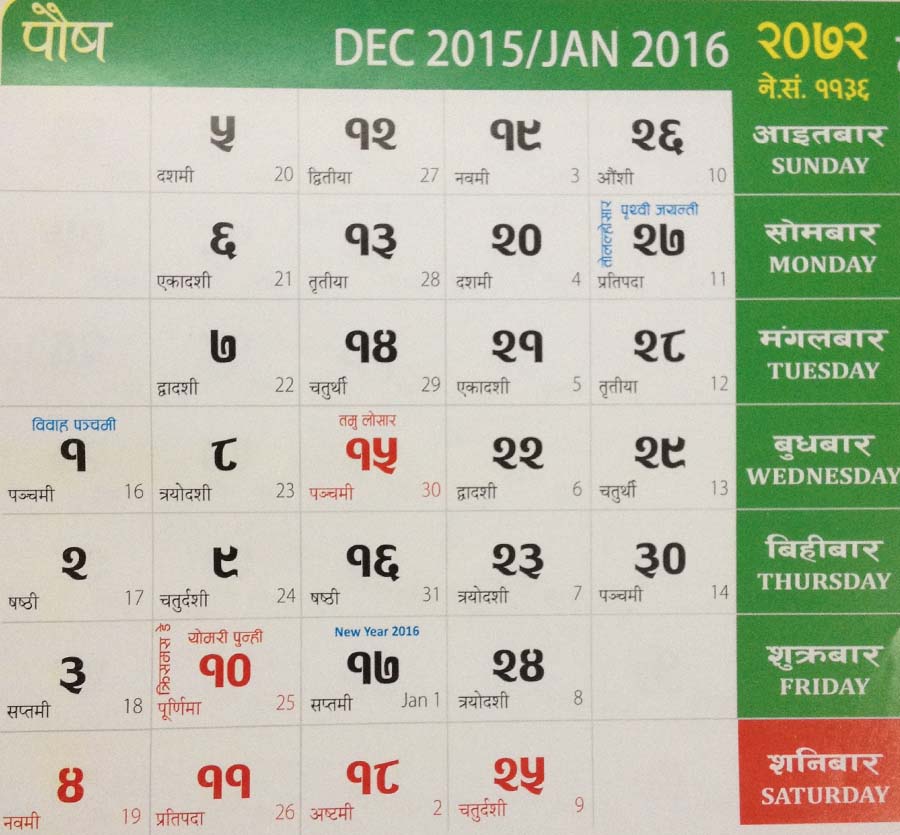 पौष DEC 2015/JAN 2016 २०७२
ने.सं. ११३६
५ १२ १९ २६ आइतबार
दशमी 20 द्वितीया 27 नवमी 3 औंशी 10 SUNDAY
तोलल्होसार पृथ्वी जयन्ती
६ १३ २० २७ सोमबार
एकादशी 21 तृतीया 28 दशमी 4 प्रतिपदा 11 MONDAY
७ १४ २१ २८ मंगलबार
द्वादशी 22 चतुर्थी 29 एकादशी 5 तृतीया 12 TUESDAY
विवाह पञ्चमी तमु लोसार
१ ८ १५ २२ २९ बुधबार
पञ्चमी 16 त्रयोदशी 23 पञ्चमी 30 द्वादशी 6 चतुर्थी 13 WEDNESDAY
२ ९ १६ २३ ३० बिहीबार
षष्ठी 17 चतुर्दशी 24 षष्ठी 31 त्रयोदशी 7 पञ्चमी 14 THURSDAY
क्रिसमस डे योमरी पुन्ही New Year 2016
३ १० १७ २४ शुक्रबार
सप्तमी 18 पूर्णिमा 25 सप्तमी Jan 1 त्रयोदशी 8 FRIDAY
४ ११ १८ २५ शनिबार
नवमी 19 प्रतिपदा 26 अष्टमी 2 चतुर्दशी 9 SATURDAY